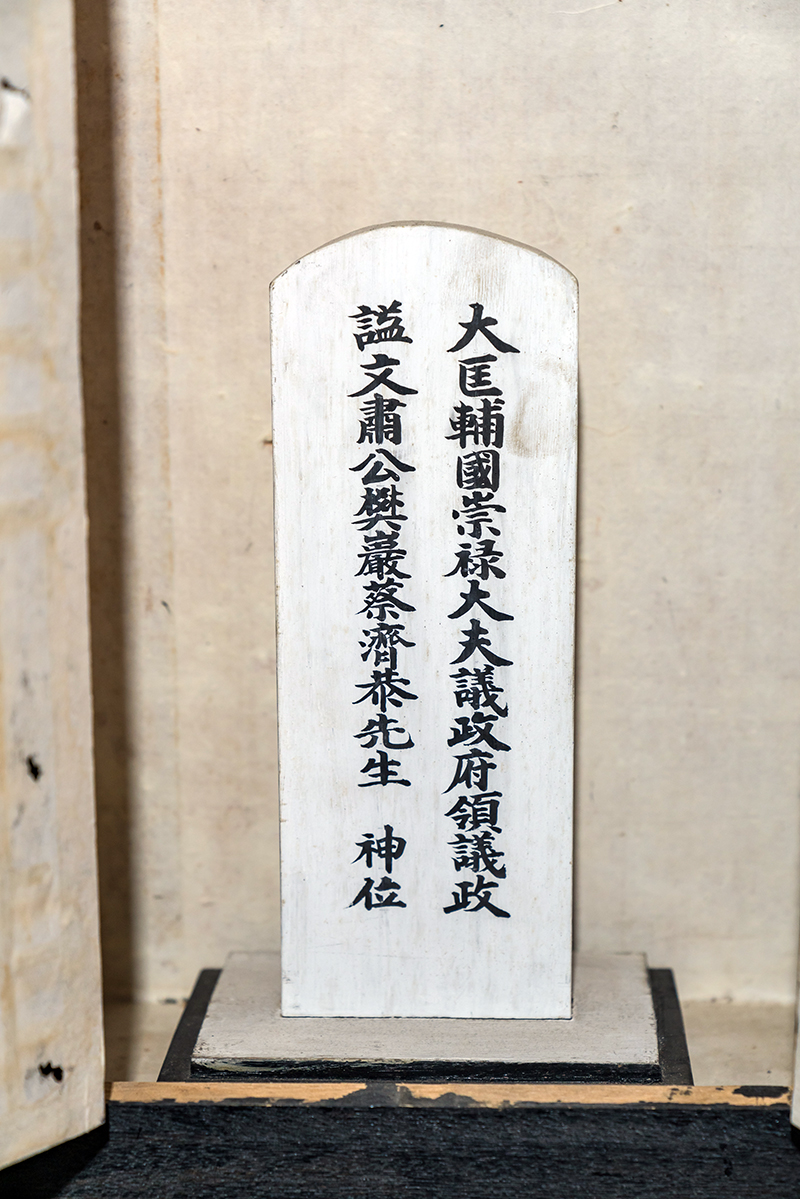 大匡輔國崇禄大夫議政府領議政
諡文肅公樊巖蔡濟恭先生 神位